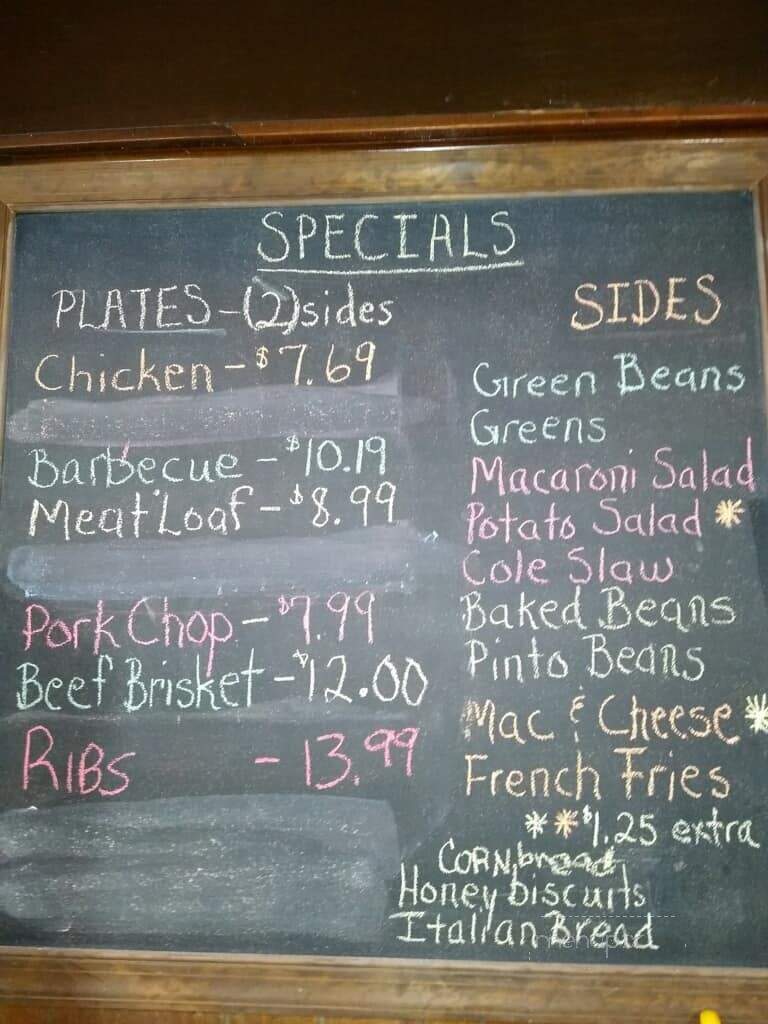 SPECIALS
PLATES-(2)sides
Chicken - $7.69
Barbecue - $10.19
Meat Loaf - $8.99
Pork Chop - $7.99
Beef Brisket - $12.00
RIBS - 13.99
SIDES
Green Beans
Greens
Macaroni Salad
Potato Salad *
Cole Slaw
Baked Beans
Pinto Beans
Mac & Cheese *
French Fries
* * $1.25 extra
CORN bread
Honey biscuits
Italian Bread